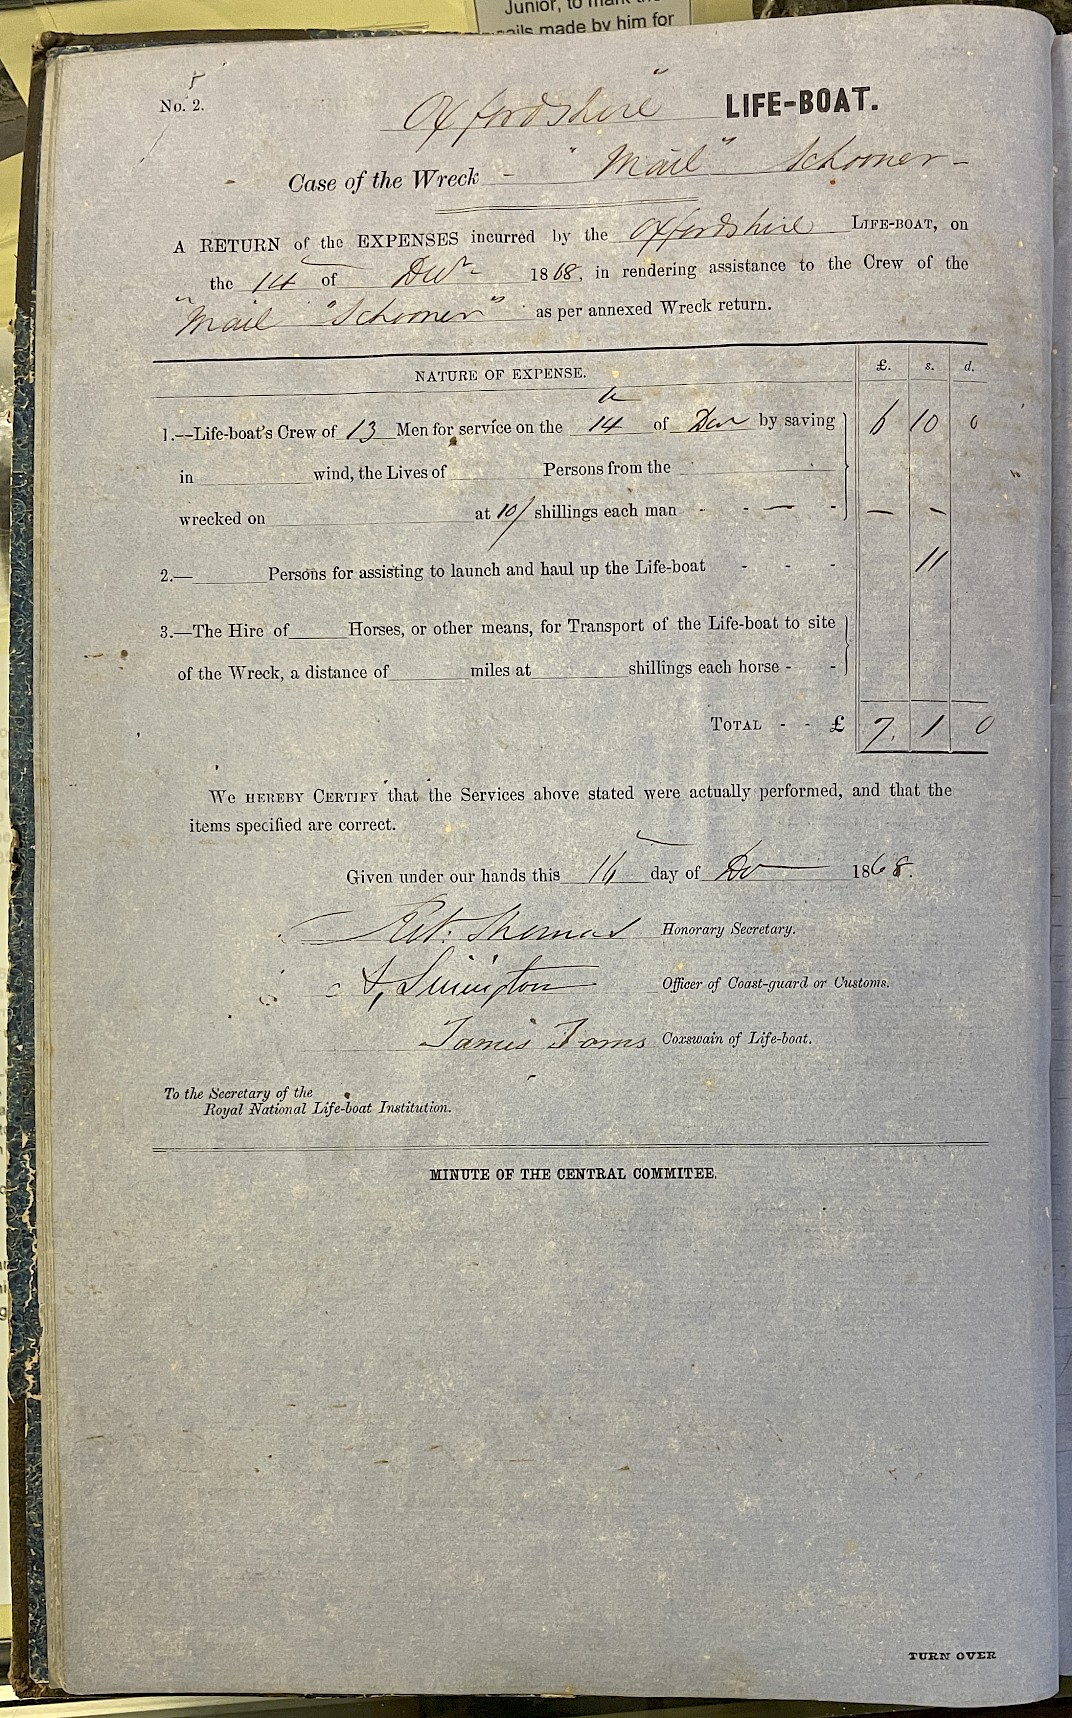 Junior, to mark the
ails made by him for
No. 2.
"Oxfordshire" LIFE-BOAT.
Case of the Wreck - "Mail" Schooner -
A RETURN of the EXPENSES incurred by the Oxfordshire LIFE-BOAT, on
the 14 of Decr 1868, in rendering assistance to the Crew of the
"Mail" "Schooner" as per annexed Wreck return.
NATURE OF EXPENSE. £. s. d.
1.—Life-boat's Crew of 13 Men for service on the 14 of Decr by saving 6 10 0
in wind, the Lives of Persons from the
wrecked on at 10/ shillings each man - - — - — -
2.— Persons for assisting to launch and haul up the Life-boat - - - 11
3.—The Hire of Horses, or other means, for Transport of the Life-boat to site
of the Wreck, a distance of miles at shillings each horse - -
TOTAL - - £ 7. 1 0
WE HEREBY CERTIFY that the Services above stated were actually performed, and that the
items specified are correct.
Given under our hands this 16 day of De 1868.
Thomas Honorary Secretary.
Officer of Coast-guard or Customs.
James Coxswain of Life-boat.
To the Secretary of the
Royal National Life-boat Institution.
MINUTE OF THE CENTRAL COMMITEE.
TURN OVER